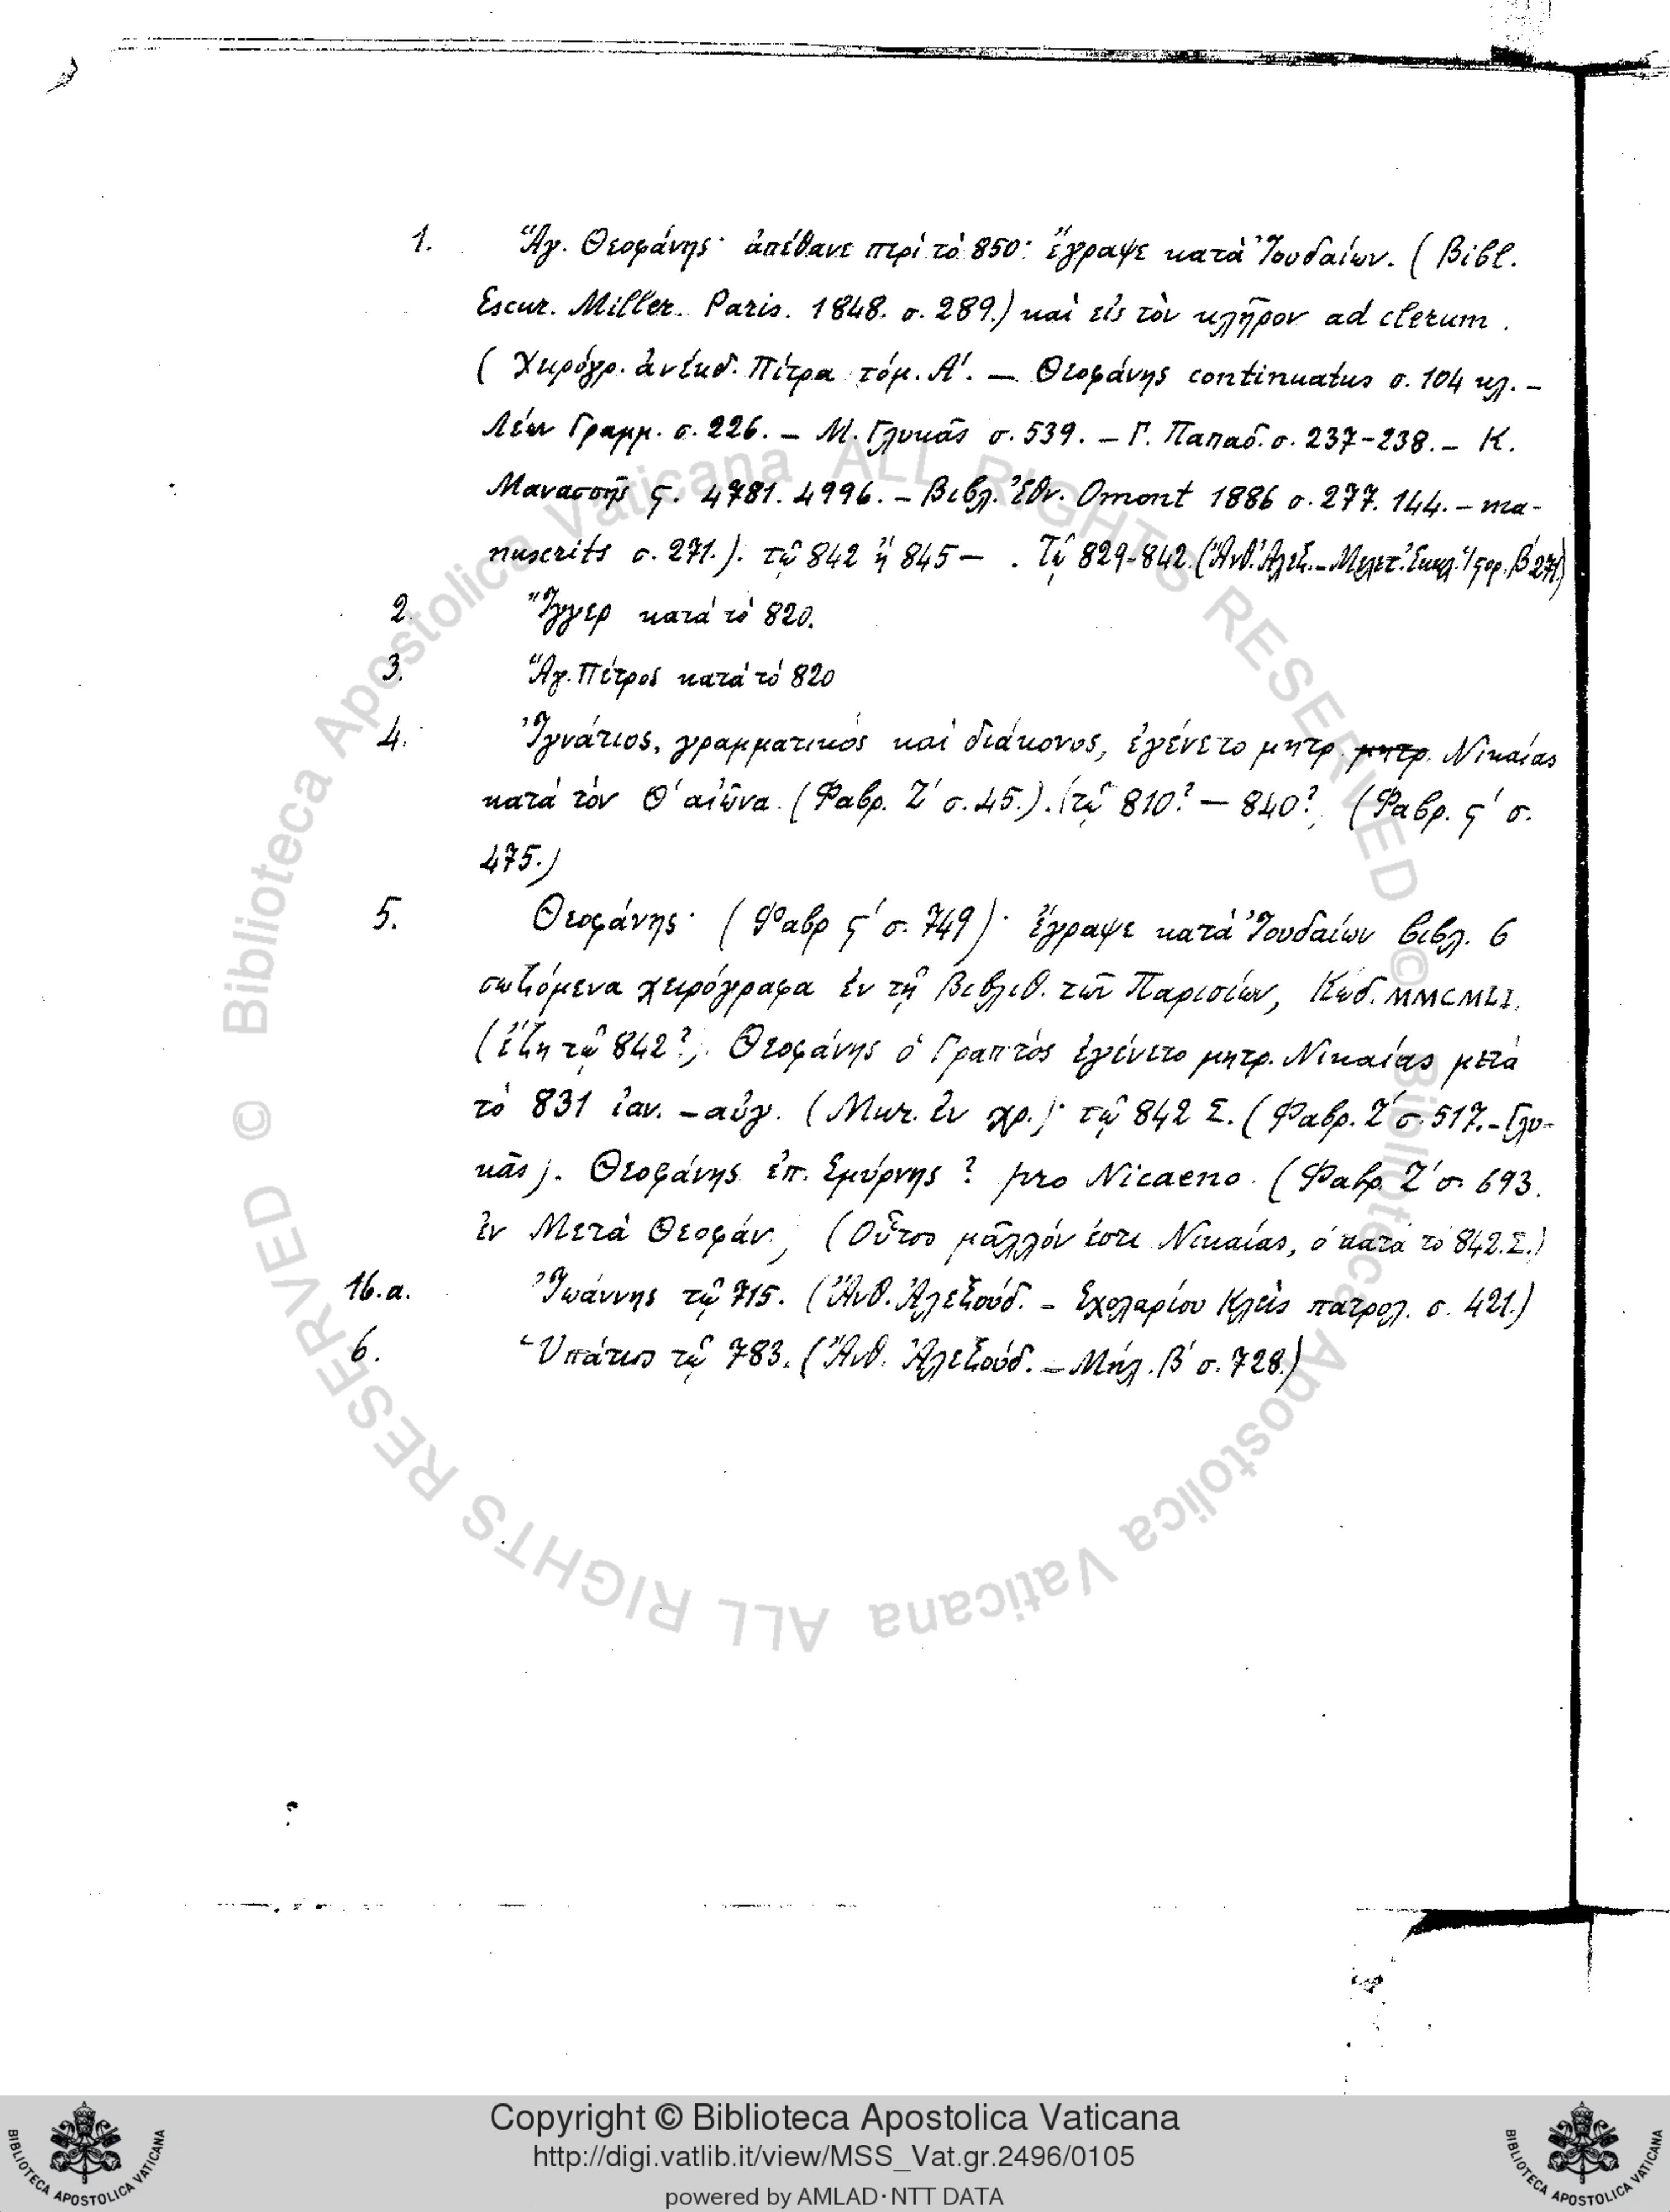 1. Ἅγ. Θεοφάνης· ἀπέθανε περὶ τὸ 850: ἔγραψε κατὰ Ἰουδαίων. (Bibl.
Escur. Miller. Paris. 1848. σ. 289.) καὶ εἰς τὸν κλῆρον ad clerum.
(Χειρόγρ. ἀνέκδ. Πίτρα τόμ. Α΄. — Θεοφάνης continuatus σ. 104 κλ. –
Λέων Γραμμ. σ. 226. – Μ. Γλυκᾶς σ. 539. – Γ. Παπαδ. σ. 237-238. – Κ.
Μανασσῆς ς. 4781. 4996. – Βιβλ. Ἐθν. Omont 1886 σ. 277. 144. – ma-
nuscrits σ. 271.). τῷ 842 ἢ 845 — . Τῷ 829-842. (Ἄνθ. Ἀλεξ. – Μελετ. Ἐκκλ. Ἱστορ. Β΄ 271)
2. Ἴγγερ κατὰ τὸ 820.
3. Ἅγ. Πέτρος κατὰ τὸ 820
4. Ἰγνάτιος, γραμματικὸς καὶ διάκονος, ἐγένετο μητρ. μητρ. Νικαίας
κατὰ τὸν Θ΄ αἰῶνα. (Φαβρ. Ζ΄ σ. 45.). (τῷ 810? — 840?, (Φαβρ. ς΄ σ.
475.)
5. Θεοφάνης· (Φαβρ ς΄ σ. 749)· ἔγραψε κατὰ Ἰουδαίων βιβλ. 6
σωζόμενα χειρόγραφα ἐν τῇ Βιβλιοθ. τῶν Παρισίων, Κώδ. MMCMLI.
(ἔζη τῷ 842?, Θεοφάνης ὁ Γραπτὸς ἐγένετο μητρ. Νικαίας μετὰ
τὸ 831 ἰαν. – αὐγ. (Μικ. ἐν χρ.)· τῷ 842 Σ. (Φαβρ. Ζ΄ σ. 517. – Γλυ-
κᾶς). Θεοφάνης ἐπ. Σμύρνης ? pro Nicaeno. (Φαβρ. Ζ΄ σ. 693.
ἐν Μετὰ Θεοφάν., (Οὗτος μᾶλλόν ἐστι Νικαίας, ὁ κατὰ τὸ 842. Σ.)
16.a. Ἰωάννης τῷ 715. (Ἄνθ. Ἀλεξούδ. – Σχολαρίου Κλεὶς πατρολ. σ. 421.)
6. Ὑπάτιος τῷ 783. (Ἄνθ. Ἀλεξούδ. – Μήλ. Β΄ σ. 728.)
© Biblioteca Apostolica Vaticana ALL RIGHTS RESERVED © Biblioteca Apostolica Vaticana ALL RIGHTS RESERVED
Copyright © Biblioteca Apostolica Vaticana
http://digi.vatlib.it/view/MSS_Vat.gr.2496/0105
powered by AMLAD·NTT DATA
BIBLIOTECA APOSTOLICA VATICANA
BIBLIOTECA APOSTOLICA VATICANA